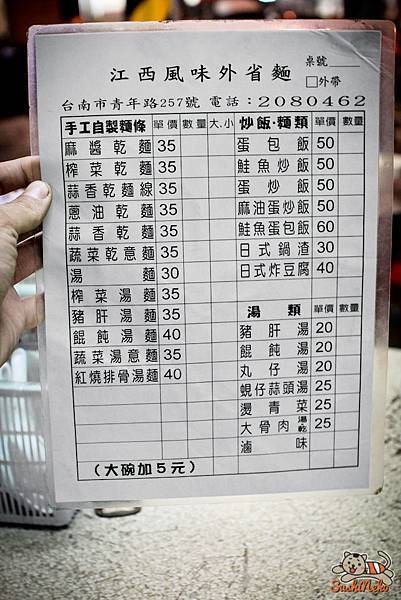 江西風味外省麵
桌號
□外帶
台南市青年路257號 電話：2080462
手工自製麵條 單價 數量 大.小
麻醬乾麵 35
榨菜乾麵 35
蒜香乾麵線 35
蔥油乾麵 35
蒜香乾麵 35
蔬菜乾意麵 35
湯麵 30
榨菜湯麵 35
豬肝湯麵 35
餛飩湯麵 40
蔬菜湯意麵 35
紅燒排骨湯麵 40
(大碗加5元)
炒飯·麵類 單價 數量
蛋包飯 50
鮭魚炒飯 50
蛋炒飯 50
麻油蛋炒飯 50
鮭魚蛋包飯 60
日式鍋渣 30
日式炸豆腐 40
湯類 單價 數量
豬肝湯 20
餛飩湯 20
丸仔湯 20
蜆仔蒜頭湯 25
燙青菜 25
大骨肉 湯 乾 25
滷味
SushiNeko